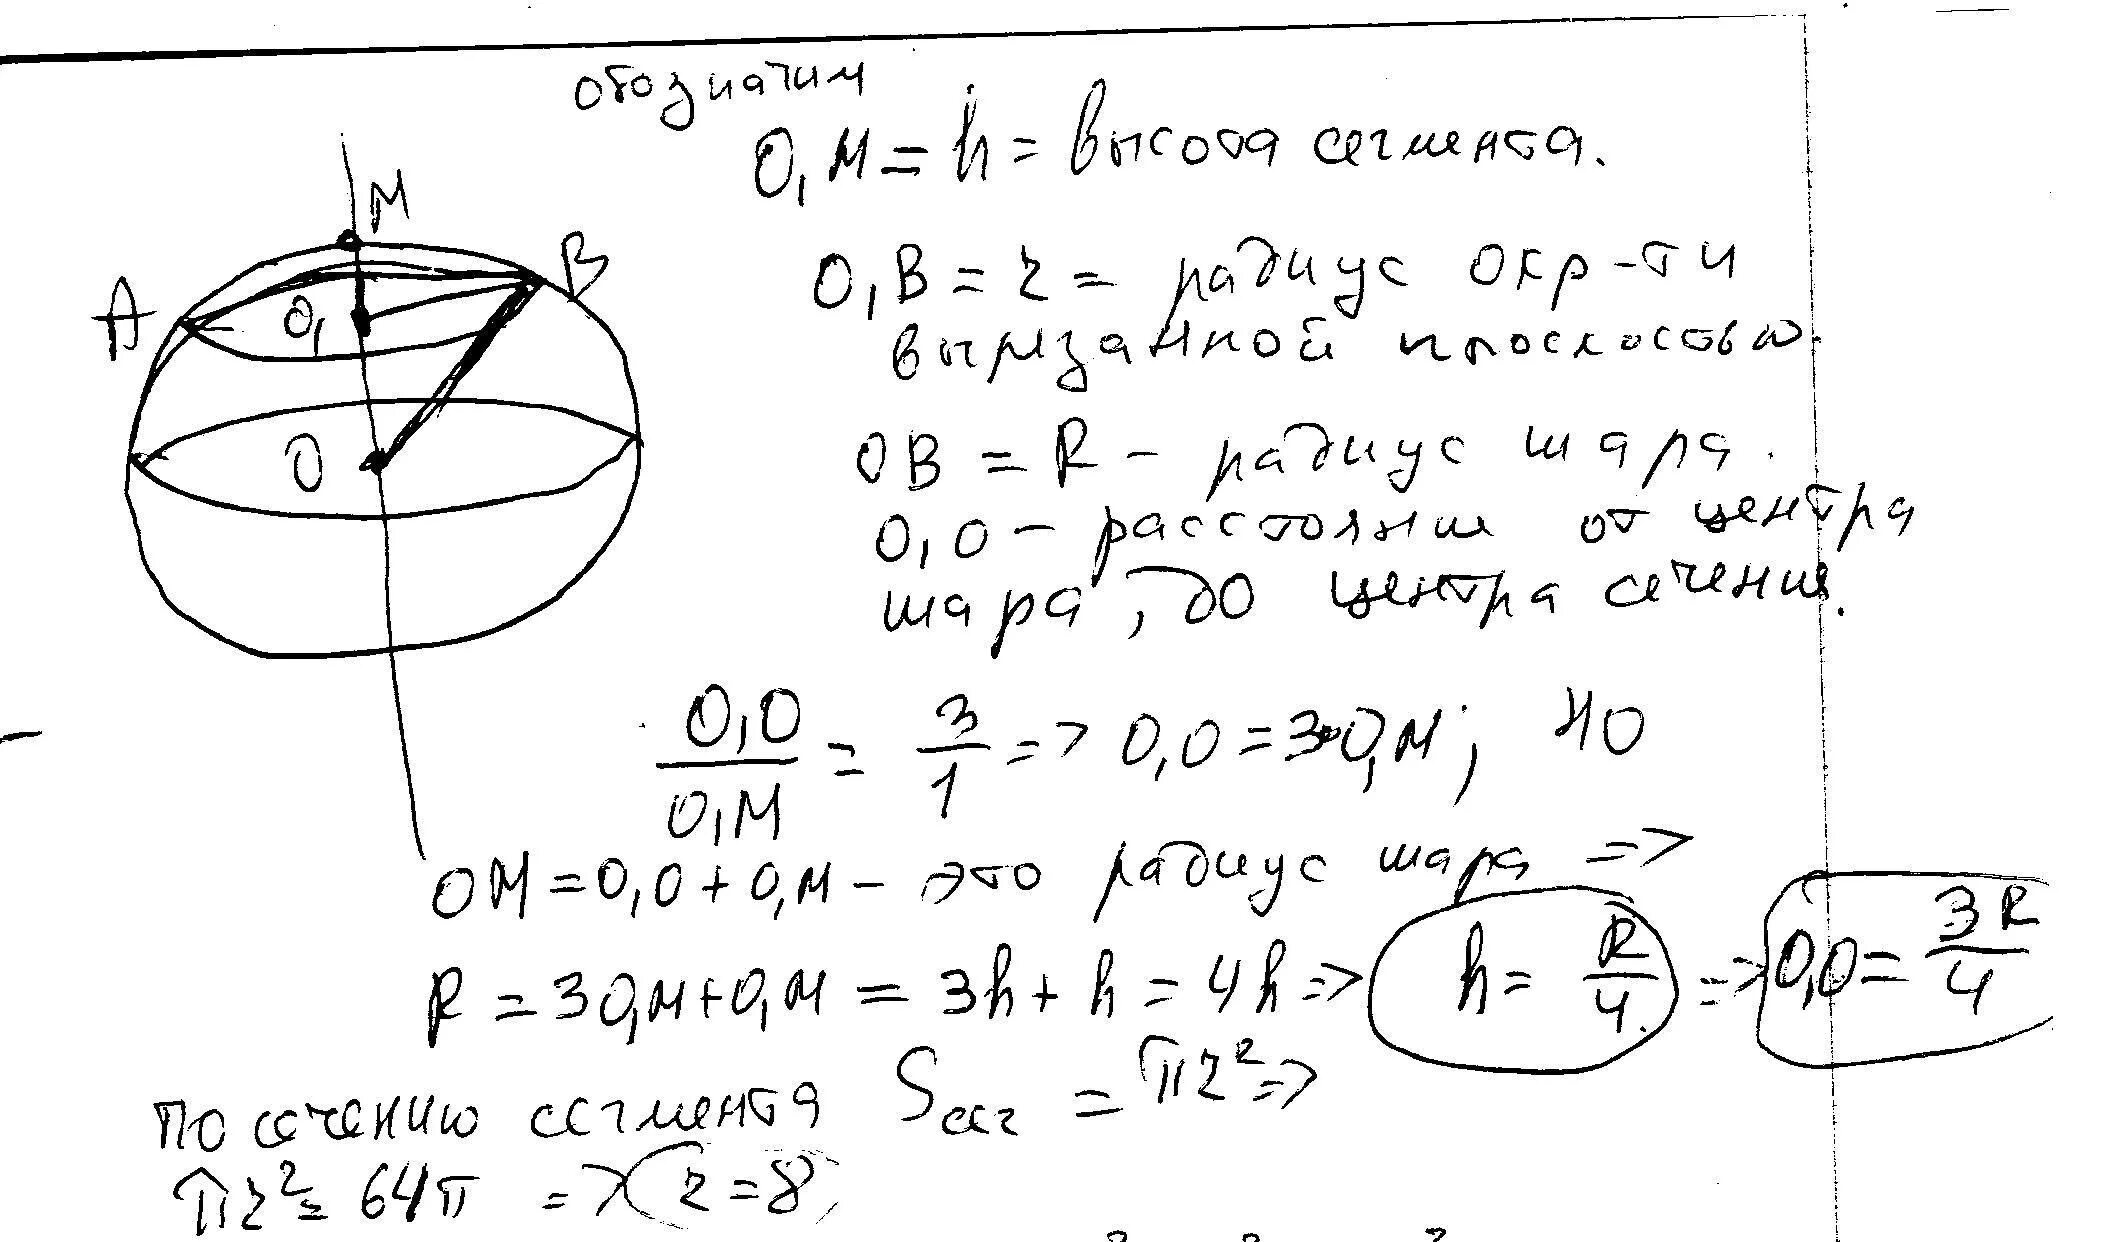 обозначим
O₁M = h = высота сегмента.
M
A
B
O₁
O
O₁B = r = радиус окр-ти
вырезанной плоскостью.
OB = R - радиус шара.
O₁O - расстояние от центра
шара, до центра сечения.
O₁O / O₁M = 3/1 => O₁O = 3·O₁M; но
OM = O₁O + O₁M - это радиус шара =>
R = 3O₁M + O₁M = 3h + h = 4h => h = R/4 => O₁O = 3R/4
по сечению сегмента Sсег = πr² =>
πr² = 64π => r = 8